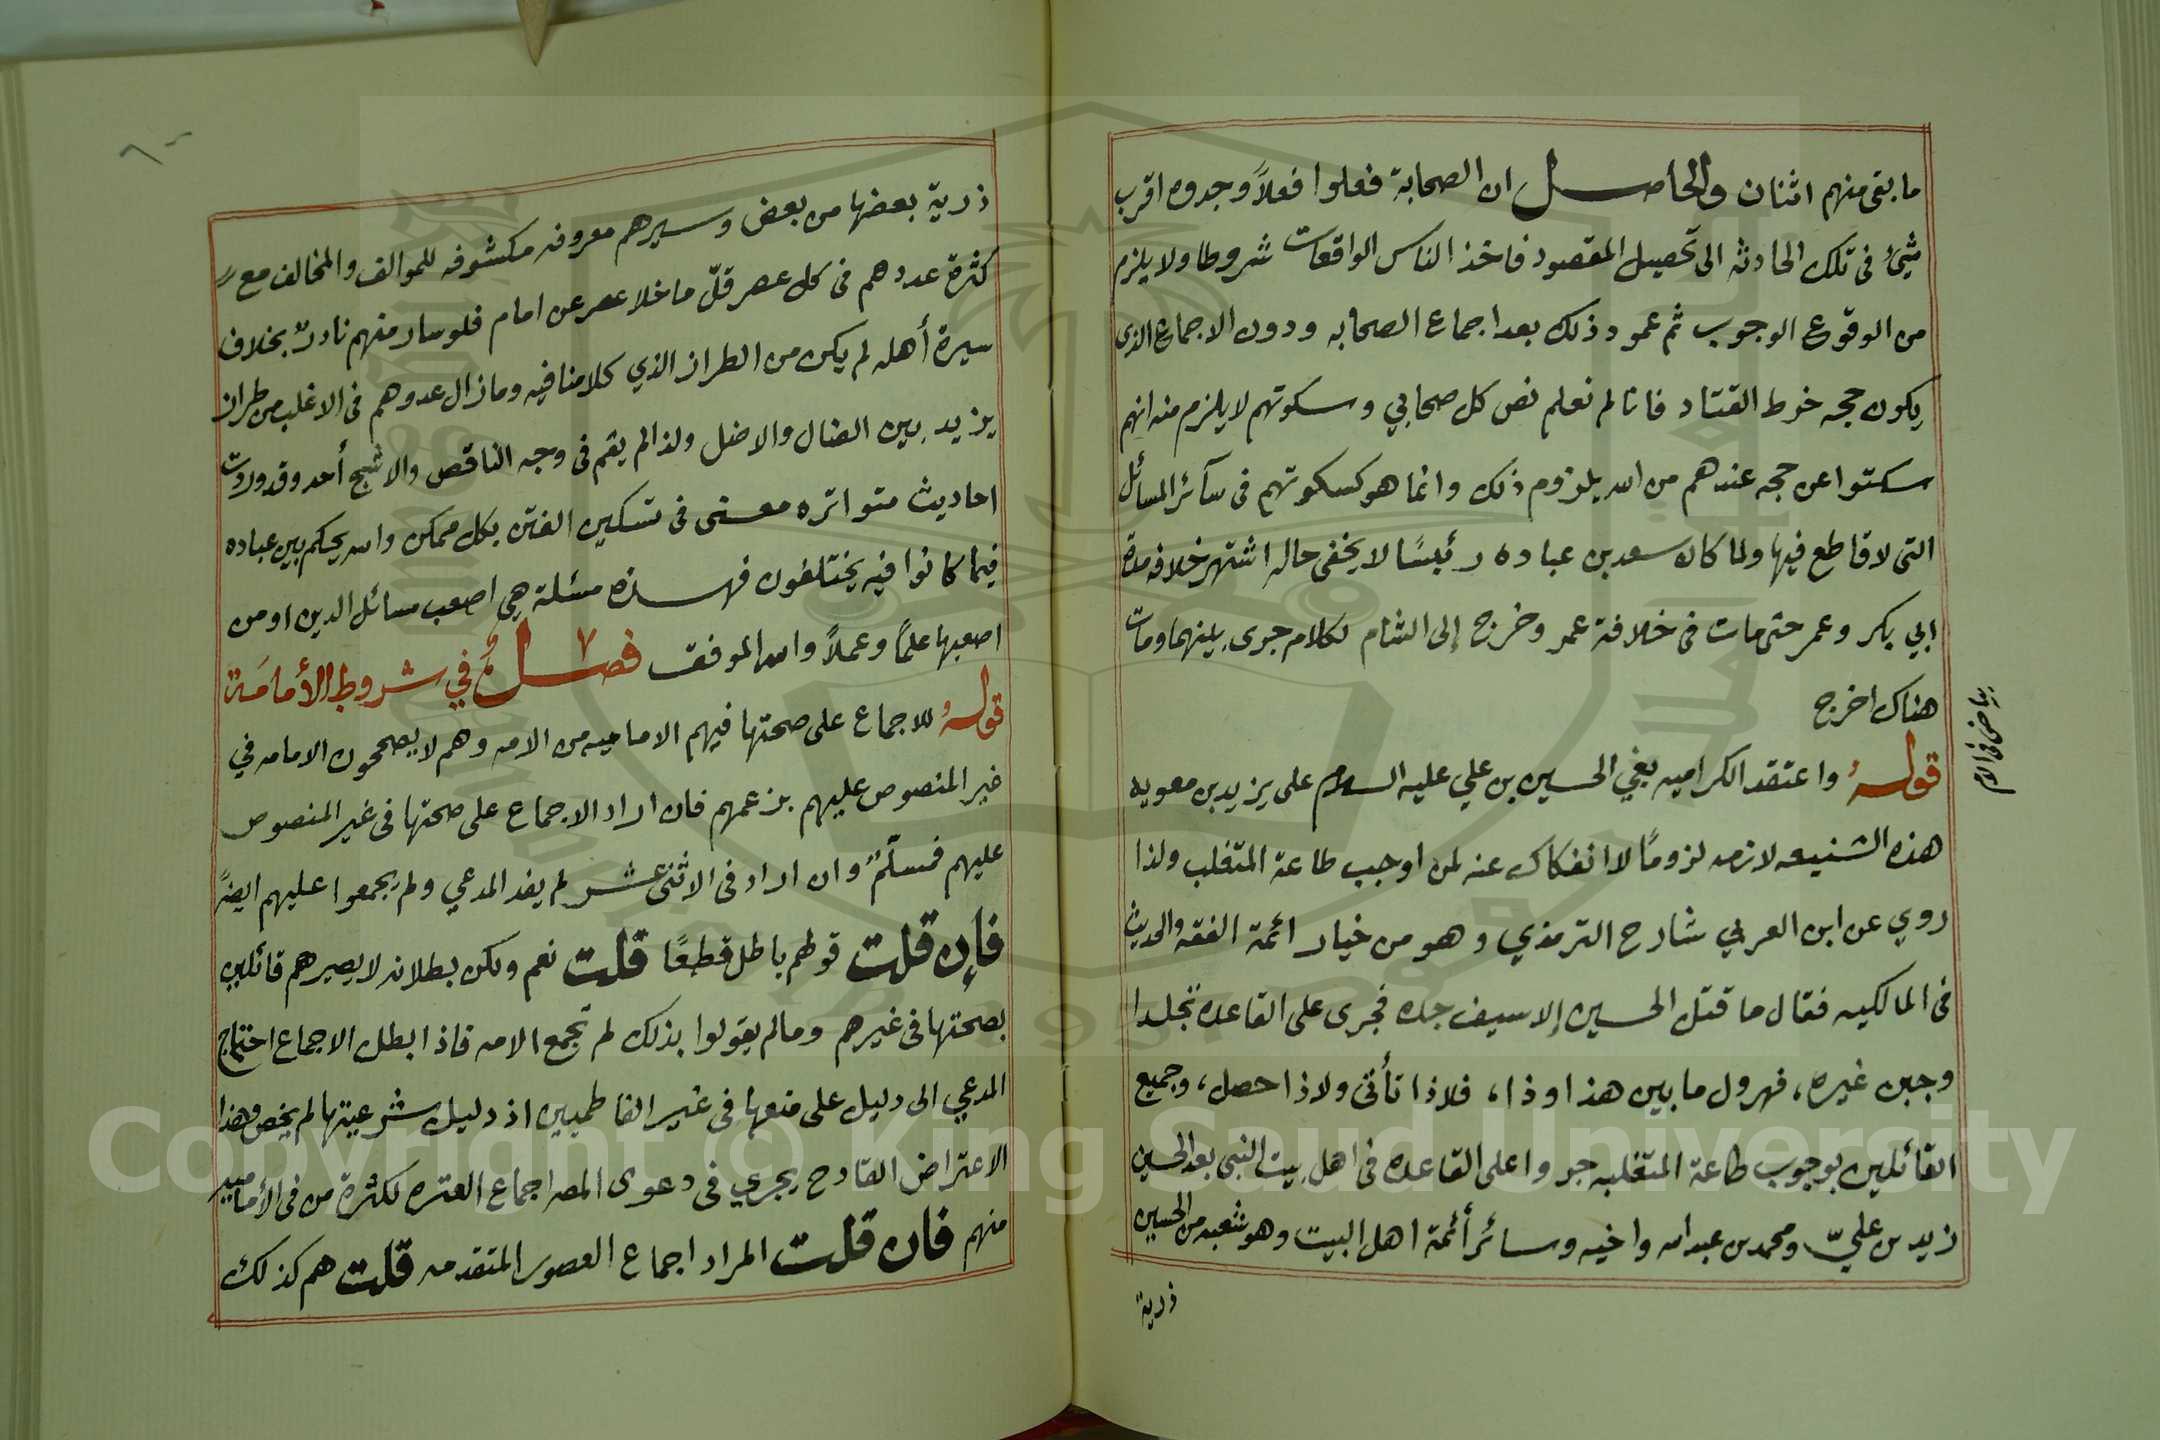 ما بقى منهم اثنان والحاصل ان الصحابة فعلوا فعلاً وجدوه اقرب
شئ في تلك الحادثه الى تحصيل المقصود فاخذ الناس الواقعات شروطا ولا يلزم
من الوقوع الوجوب ثم عمود ذلك بعد اجماع الصحابه ودون الاجماع الذى
يكون حجه خوط القتاد فانا لم نعلم نص كل صحابي وسكوتهم لا يلزم منه انهم
سكتوا عن حجه عندهم من الله بلزوم ذلك وانما هو كسكوتهم في سآئر المسائل
التى لا قاطع فيها ولما كان سعد بن عباده رئيسًا لا يخفى حاله اشتهر خلافه مدة
ابي بكر وعمر حتى مات في خلافة عمر وخرج إلى الشام لكلام جرى بينهما ومات
هناك اخرج
بياض في الام
قوله واعتقد الكراميه بغي الحسين بن علي عليه السلام على يزيد بن معويه
هذه الشنيعه لازمه لزومًا لا انفكاك عنه لمن اوجب طاعة المتغلب ولذا
روي عن ابن العربي شارح الترمذي وهو من خيار ائمة الفقه والحديث
في المالكيه فقال ما قتل الحسين إلا سيف جده فجرى على القاعده تجلدا
وجبن غيره، فهرول ما بين هذا وذا، فلا ذا تأتى ولا ذا حصل، وجميع
القائلين بوجوب طاعة المتغلبه جروا على القاعده في اهل بيت النبى بعد الحسين
زيد بن عليّ ومحمد بن عبد الله واخيه وسائر أئمة اهل البيت وهو شعبه من الحسين
ذرية
ذرية بعضها من بعض وسيرهم معروفه مكشوفه للموالف والمخالف مع
كثرة عددهم في كل عصر قلّ ما خلا عصر عن امام فلو سار منهم نادرٌ بخلاف
سيرة أهله لم يكن من الطراز الذي كلامنا فيه وما زال عدوهم في الاغلب من طراز
يزيد بين الضال والاضل ولذا لم يقم في وجه الناقص والاشج أحد وقد وردت
احاديث متواتره معنى في تسكين الفتن بكل ممكن والله يحكم بين عباده
فيما كانوا فيه يختلفون فهذه مسئلة هي اصعب مسائل الدين او من
اصعبها علمًا وعملاً والله الموفق فصلٌ في شروط الأمامَة
قوله للاجماع على صحتها فيهم الاماميه من الامه وهم لا يصححون الامامه في
غير المنصوص عليهم بزعمهم فان اراد الاجماع على صحتها في غير المنصوص
عليهم فمسلّمٌ وان اراد في الاثنى عشر لم يفد المدعي ولم يجمعوا عليهم ايضًا
فإن قلت قولهم باطل قطعًا قلت نعم ولكن بطلانه لا يصيرهم قائلين
بصحتها في غيرهم وما لم يقولوا بذلك لم تجمع الامه فاذا بطل الاجماع احتاج
المدعي الى دليل على منعها في غير الفاطميين اذ دليل شرعيتها لم يخص وهذا
الاعتراض القادح يجري في دعوى المصـ اجماع العتره لكثرة من في الأماميه
منهم فان قلت المراد اجماع العصور المتقدمه قلت هم كذلك